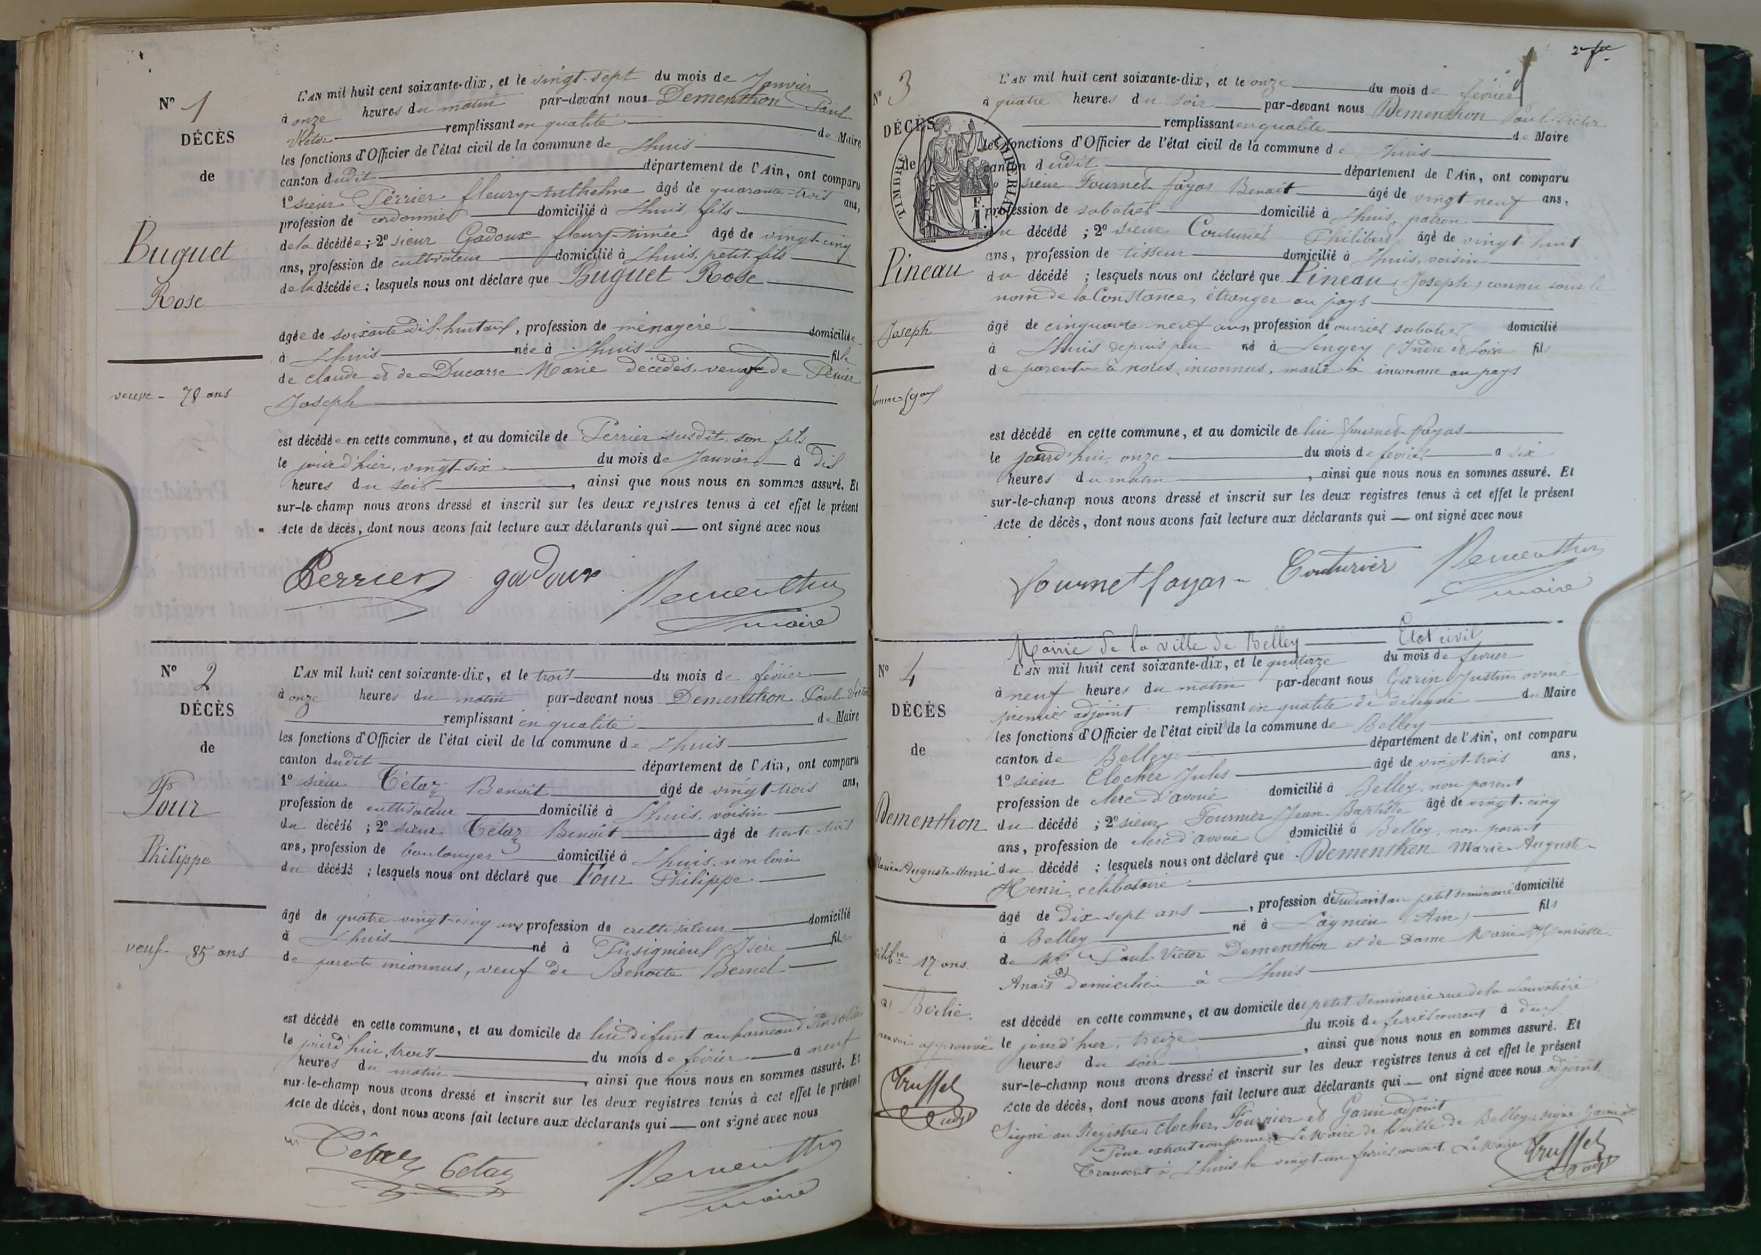 N° 1
DÉCÈS
de
Buguet
Rose
veuve - 78 ans
L'AN mil huit cent soixante-dix, et le vingt-sept du mois de Janvier
à onze heures du matin par-devant nous Dementhon Paul
Victor remplissant en qualité de Maire
les fonctions d'Officier de l'état civil de la commune de Lhuis
canton dudit département de l'Ain, ont comparu
1° sieur Perrier fleury Anthelme âgé de quarante-trois ans,
profession de cordonnier domicilié à Lhuis, fils
de la décédée ; 2° sieur Gadoux fleury-Aimée âgé de vingt-cinq
ans, profession de cultivateur domicilié à Lhuis, petit fils
de la décédée ; lesquels nous ont déclaré que Buguet Rose
âgée de soixante dix-huit ans, profession de ménagère domiciliée
à Lhuis née à Lhuis fille
de claude et de Ducarre Marie décédés, veuve de Perrier
Joseph
est décédée en cette commune, et au domicile de Perrier susdit son fils
le jourd'hier, vingt-six du mois de Janvier à dix
heures du soir, ainsi que nous nous en sommes assuré. Et
sur-le-champ nous avons dressé et inscrit sur les deux registres tenus à cet effet le présent
Acte de décès, dont nous avons fait lecture aux déclarants qui — ont signé avec nous
Perrier gadoux Dementhon
maire
N° 2
DÉCÈS
de
Pour
Philippe
veuf - 85 ans
L'AN mil huit cent soixante-dix, et le trois du mois de février
à onze heures du matin par-devant nous Dementhon Paul Victor
remplissant en qualité de Maire
les fonctions d'Officier de l'état civil de la commune de Lhuis
canton dudit département de l'Ain, ont comparu
1° sieur Cétaz Benoit âgé de vingt-trois ans,
profession de cultivateur domicilié à Lhuis, voisin
du décédé ; 2° sieur Cétaz Benoit âgé de trente-trois
ans, profession de boulanger domicilié à Lhuis, non loin
du décédé ; lesquels nous ont déclaré que Pour Philippe
âgé de quatre-vingt-cinq ans profession de cultivateur domicilié
à Lhuis né à Pusignieu (Isère fils
de parents inconnus, veuf de Benoite
est décédé en cette commune, et au domicile de lui défunt au hameau
le jourd'hui, trois du mois de février à neuf
heures du matin, ainsi que nous nous en sommes assuré. Et
sur-le-champ nous avons dressé et inscrit sur les deux registres tenus à cet effet le présent
Acte de décès, dont nous avons fait lecture aux déclarants qui — ont signé avec nous
Cétaz Cetaz Dementhon
maire
N° 3
DÉCÈS
de
TIMBRE IMPERIAL
Pineau
Joseph
L'AN mil huit cent soixante-dix, et le onze du mois de février
à quatre heures du soir par-devant nous Dementhon Paul-Victor
remplissant en qualité de Maire
les fonctions d'Officier de l'état civil de la commune de Lhuis
canton dudit département de l'Ain, ont comparu
1° sieur Fournet fayos Benoit âgé de vingt neuf ans,
profession de sabotier domicilié à Lhuis, patron
du décédé ; 2° sieur Couturier Philibert âgé de vingt huit
ans, profession de tisseur domicilié à Lhuis, voisin
du décédé ; lesquels nous ont déclaré que Pineau (Joseph) connu sous le
nom de la Constance, étranger au pays
âgé de cinquante-neuf ans profession de ouvrier sabotier domicilié
à Lhuis depuis peu né à (Indre et Loire fils
de parents à nous inconnus, marié à inconnue au pays
est décédé en cette commune, et au domicile de lui fournet-fayos
le jourd'hui onze du mois de février à six
heures du matin, ainsi que nous nous en sommes assuré. Et
sur-le-champ nous avons dressé et inscrit sur les deux registres tenus à cet effet le présent
Acte de décès, dont nous avons fait lecture aux déclarants qui — ont signé avec nous
Fournet fayos Couturier Dementhon
maire
Mairie de la ville de Belley Etat civil
N° 4
DÉCÈS
de
Dementhon
Marie Auguste-Henri
17 ans
renvoi approuvé
Truffet
adjt
L'AN mil huit cent soixante-dix, et le quatorze du mois de février
à neuf heures du matin par-devant nous Garin Justin avoué
premier adjoint remplissant en qualité de délégué du Maire
les fonctions d'Officier de l'état civil de la commune de Belley
canton de Belley département de l'Ain, ont comparu
1° sieur Clocher Jules âgé de vingt trois ans,
profession de clerc d'avoué domicilié à Belley, non parent
du décédé ; 2° sieur Fournier Jean Baptiste âgé de vingt-cinq
ans, profession de clerc d'avoué domicilié à Belley, non parent
du décédé ; lesquels nous ont déclaré que Dementhon Marie-Auguste-
Henri, célibataire
âgé de dix-sept ans, profession d'étudiant au petit seminaire domicilié
à Belley né à Lagnieu (Ain) fils
de Mr Paul Victor Dementhon et de Dame Marie Henriette
Anaïs domiciliés à Lhuis
est décédé en cette commune, et au domicile de petit seminaire rue de la
le jourd'hier, treize du mois de février courant à deux
heures du soir, ainsi que nous nous en sommes assuré. Et
sur-le-champ nous avons dressé et inscrit sur les deux registres tenus à cet effet le présent
Acte de décès, dont nous avons fait lecture aux déclarants qui — ont signé avec nous adjoint
Signé au Registre, Clocher, Fournier et Garin adjoint
Pour extrait conforme, Le Maire de la ville de Belley, signé
Transcrit à Lhuis le vingt-un février courant. Le Maire
Truffet
adjt